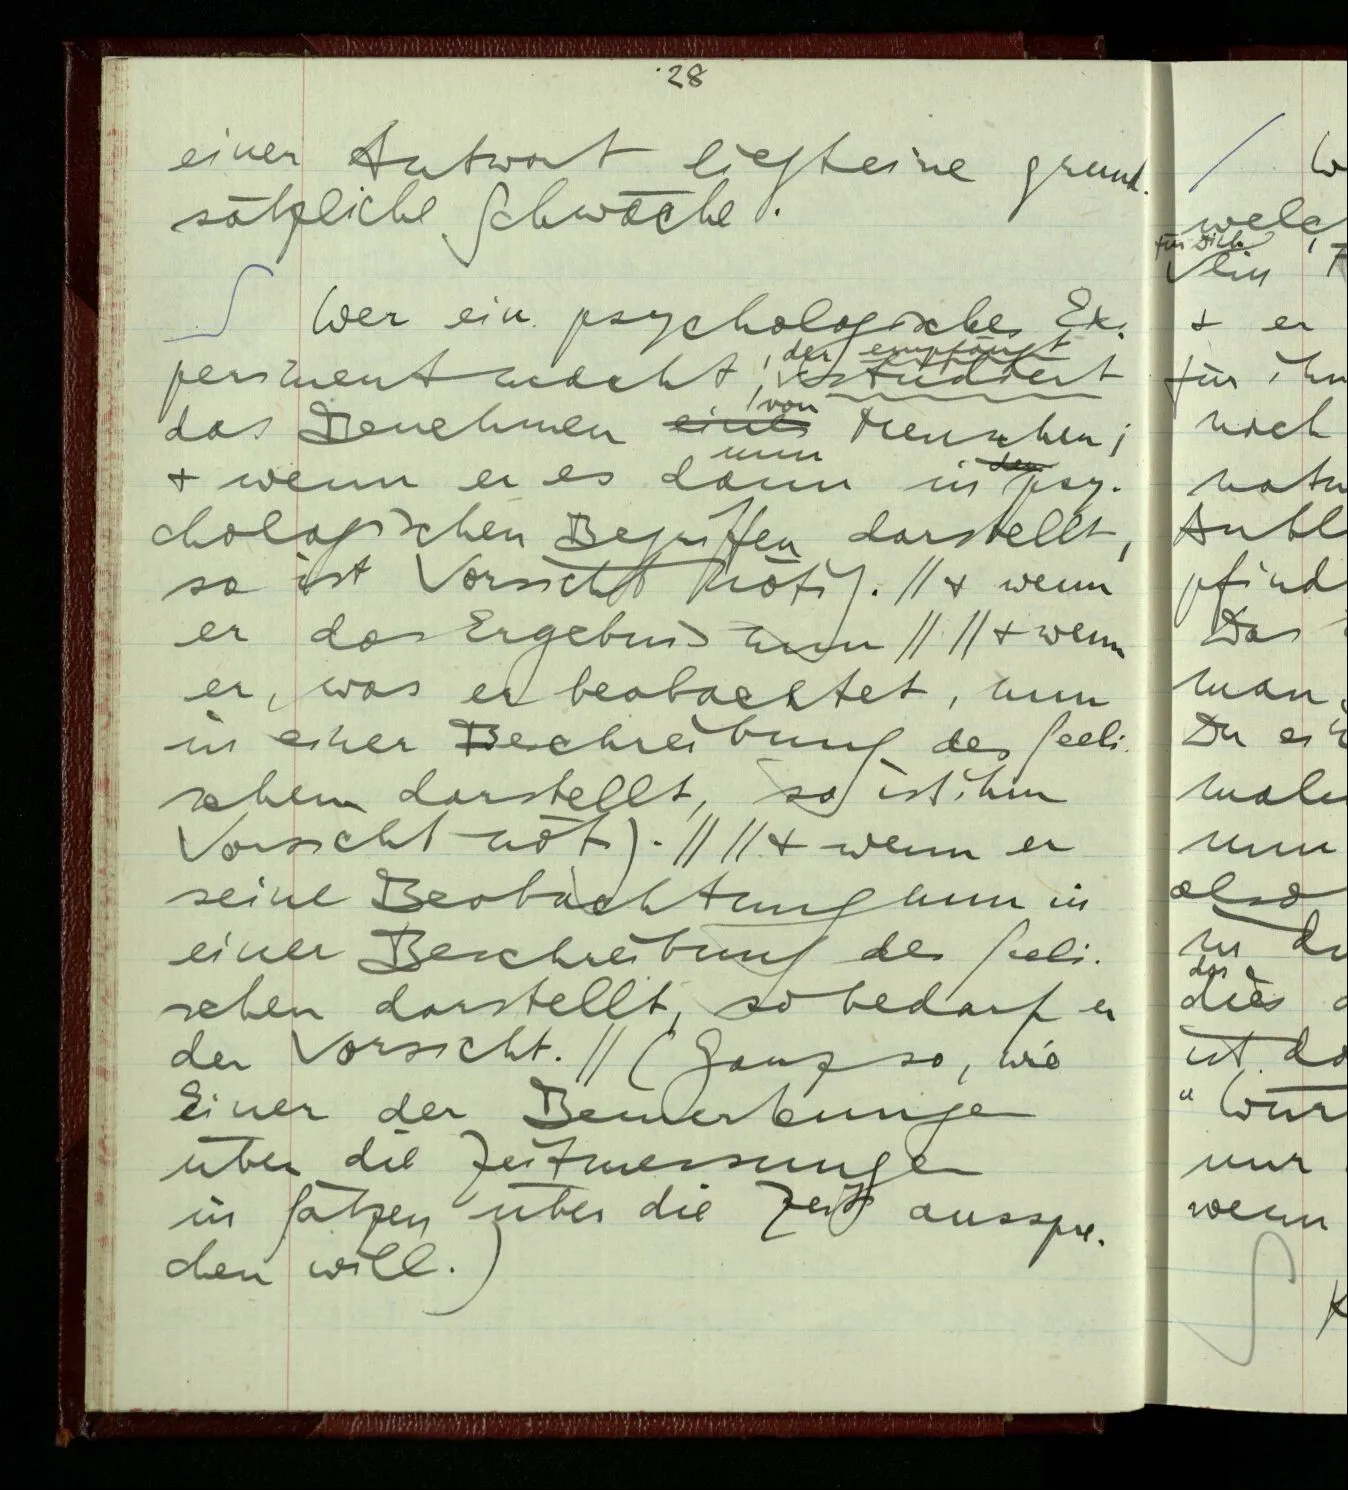 28
einer Antwort liegt eine grund-
sätzliche Schwäche.
∫ Wer ein psychologisches Ex-
der empfängt
periment macht, studiert
von
das Benehmen eines Menschen;
nun
+ wenn er es dann in den psy-
chologischen Begriffen darstellt,
so ist Vorsicht nötig. // + wenn
er das Ergebnis nun // // + wenn
er, was er beobachtet, nun
in einer Beschreibung des Seeli-
schem darstellt, so ist ihm
Vorsicht nötig. // // + wenn er
seine Beobachtung nun in
einer Beschreibung des Seeli-
schen darstellt, so bedarf er
der Vorsicht. // (Ganz so, wie
Einer der Bemerkungen
über die Zeitmessungen
in Sätzen über die Zeitausspre-
chen will.)
/ W
welc
für Dich
ein F
+ er
für ihn
noch
natu
Anbl
pfind
Das
man
Du
male
nun
also
in du
das
dies
ist da
"Wür
nur
wenn
∫ K